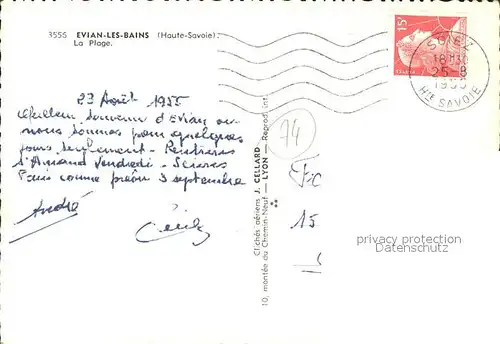 3555 EVIAN-LES-BAINS (Haute-Savoie).
La Plage.
15F
SCIEZ
18H30
25-8
1955
Hte SAVOIE
23 Août 1955
Meilleur souvenir d'Evian où
nous sommes pour quelques
jours seulement -
Vendredi -
Paris comme prévu 3 septembre
André
Cécile
Clichés aériens J. CELLARD
10, montée du Chemin-Neuf — LYON — Reprod. int.
74
15
privacy protection
Datenschutz